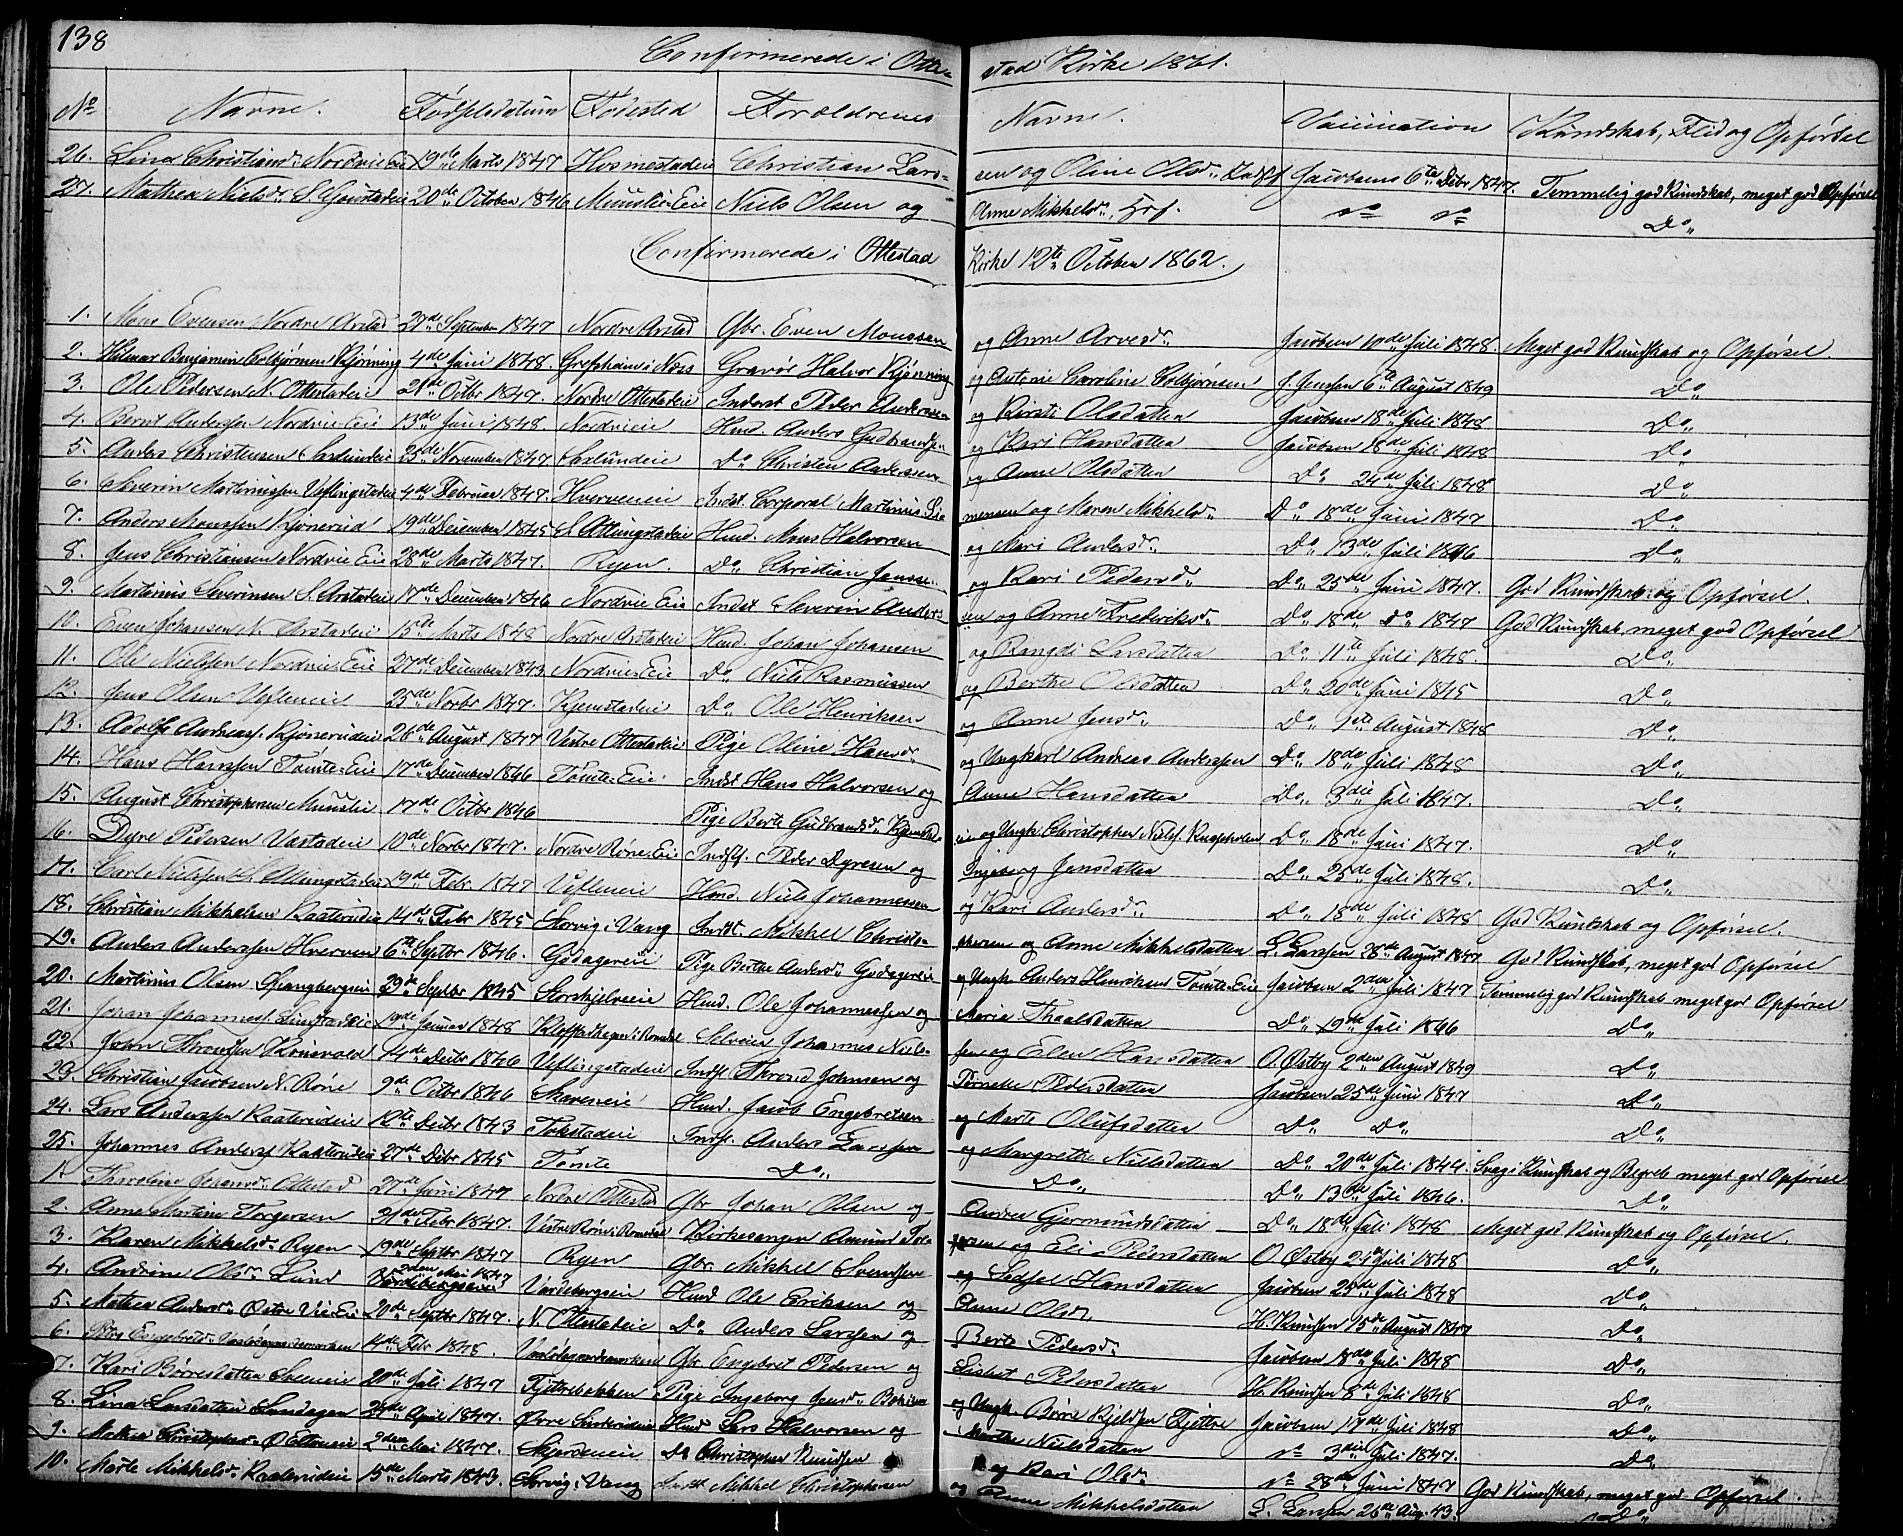 138
Confirmerede i Ottestad Kirke 1861.
No Navne. Fødselsdatum Fødested Forældrenes Navne. Vaccination Kundskab, Flid og Opførsel
26. Lina Christiansd. Nordvie Eie 19de Marts 1847 Hosmestadeie Christian Larssen og Oline Olsd. Jacobsens 6te Debr 1847. Temmelig god Kundskab, meget god Opførsel
27. Mathea Nielsd. 20de October 1846 Muuslie-Eie Niels Olsen og Anne Mikkelsd. Do Do Do
Confirmerede i Ottestad Kirke 12te October 1862.
1. Mons Evensen Nordre Arstad 27de September 1847 Nordre Arstad Gbr. Even Monssen og Anne Arvesd. Jacobsen 10de Juli 1848. Meget god Kundskab og Opførsel
2. Hilmar Benjamin Colbjørnsen Kjønning 4de Juni 1848. Grefsheim i Næs Gravør Halvor Kjønning og Antonie Caroline Colbjørnsen J. Jensen 6te August 1849 Do
3. Ole Pedersen N. Ottestadeie 21de Octbr 1847. Nordre Ottestadeie Inderst Peder Andersen og Kirsti Olsdatter Jacobsens 18de Juli 1848 Do
4. Bernt Andersen Nordvie Eie 13de Juni 1848 Nordvieeie Husd. Anders Gudbrandsen og Kari Hansdatter Jacobsen 18de Juli 1848 Do
5. Anders Christensen 25de November 1847 Do Christen Andersen og Anne Olsdatter Do 24de Juli 1848 Do
6. Severin Martinussen Veflingstadeie 4de Februar 1847. Hverveneie Indst. Corporal Martinus Simensen og Maren Mikkelsd. Do 18de Juni 1847 Do
7. Anders Monssen Kjønerud 19de December 1845 Husd. Mons Halvorsen og Mari Andersd. Do 13de Juli 1846 Do
8. Jens Christiansen Nordvie Eie 28de Marts 1847. Ryen. Do Christian Jensen og Kari Pedersd. Do 25de Juni 1847. God Kundskab og Opførsel.
9. Martinus Severinsen S. Arstadeie 17de December 1846 Nordvie Eie Indst Severin Andersen og Anne Frederiksd. Do 18de Do 1847 God Kundskab meget god Opførsel
10. Even Johansen N. Arstadeie 15de Marts 1848 Nordre Arstadeie Husd. Johan Johansen og Rangdi Larsdatter Do 11te Juli 1848. Do
11. Ole Nielssen Nordvie-Eie 27de December 1843 Nordvie-Eie Do Niels Rasmussen og Berthe Olsdatter Do 20de Juni 1845 Do
12. Jens Olsen Vefleneie 25de Norbr 1847. Kjemstadeie Do Ole Henriksen og Anne Jensd. Do 1ste August 1848 Do
13. Adolf Andreass. Kjønerudeie 26de August 1847 Vestre Ottestadeie Pige Oline Hansd. og Ungkarl Andreas Anderssen Do 18de Juli 1848 Do
14. Hans Hanssen Tomte-Eie 17de December 1846 Tomte-Eie Indst Hans Halvorsen og Anne Hansdatter Do 3die Juli 1847. Do
15. August Christophersen Muuslie 17de Octbr 1846 Pige Berte Gudbrandsd. og Ungk. Christopher Nielss. Do 18de Juni 1847. Do
16. Dyre Pedersen Vastadeie 10de Norbr 1847. Nordre Røne-Eie Indst. Peder Dyresen og Ingeborg Jensdatter Do 25de Juli 1848. Do
17. Carl Nielssen 19de Febr. 1847 Vefleneie Husd. Niels Johannessen og Kari Andersd. Do 18de Juli 1848 God Kundskab og Opførsel.
18. Christian Mikkelsen Kaaterudeie 14de Febr 1845 Storvig i Vang Indst. Mikkel Christophersen og Anne Mikkelsdatter L. Larssen 28de August 1847 God Kundskab, meget god Opførsel
19. Anders Anderssen Hverven 6te Septbr 1846. Godagereie Pige Berthe Andersd. Godagereie og Ungk. Anders Henriksen Tomte-Eie Jacobsen 2den Juli 1847 Temmelig god Kundskab meget god Opførsel
20. Martinus Olsen 29de Septbr 1845 Storskjelveeie Husd. Ole Johannessen og Maria Do 19de Juli 1846 Do
21. Johan Johanness. 19de Januar 1848 Selveier Johannes Nielssen og Elen Hansdatter O. Østby 2den August 1849 Do
22. John Throndsen 14de Decbr 1846 Veflingstadeie Indst. Thrond Johnsen og Pernelle Pedersdatter Jacobsen 25de Juni 1847 Do
23. Christian Jacobsen N. Røne 9de Octbr 1846 Skareneie Husd. Jacob Engebretsen og Marte Olufsdatter Do Do Do
24. Lars Anderssen Kaaterudeie 12te Decbr 1843 Tokstadeie Indst. Anders Larssen og Margrethe Nielsdatter Do 20de Juli 1844. Svag i Kundskab og Begreb meget god Opførsel
25. Johannes Anderss. Kaaterudeie 27de Debr 1845 Tomte Do Do Do 13de Juli 1846. Do
1. Karoline Johansd. Ottestad 27de Juni 1847 Nordre Ottestad Gbr Johan Olsen og Gjermundsdatter Do 18de Juli 1848 Meget god Kundskab og Opførsel.
2. Anne Martine Torgersen 21de Febr 1847. Vestre Røne i Romedal Kirkesanger Amund Torgersen og Eli Pedersdatter O. Østby 24de Juli 1848 Do
3. Karen Mikkelsd. Ryen 19de Septbr 1847 Ryen Gbr. Mikkel Svendsen og Sidsel Hansdatter Jacobsen 25de Juli 1848 Do
4. Andrine Olsd. Lund 2den Mai 1847 Vardebergseie Husd Ole Eriksen og Anne Olsd. H. Knudsen 15de August 1847 Do
5. Mathea Andersd. Østre Vie-Eie 20de Septbr 1847. N. Ottestadeie Do Anders Larssen og Berte Pedersd. Jacobsen 18de Juli 1848 Do
6. Engebretsd. 4de Febr 1848. Gbr. Engebret Pedersen og Lisbet Pedersdatter H. Knudsen 8de Juli 1848 Do
7. Kari Børresdatter 20de Juli 1847 Fjettrebakken Pige Ingeborg Jensd. og Ungk. Børre Kjeldsen Fjettre Jacobsen 17de Juli 1848 Do
8. Lina Larsdatter Sundagen 27de April 1847. Øvre Husd Lars Halvorsen og Nielsdatter Do 3die Juli 1847. Do
9. Mathea Christophersd. 2den Mai 1847. Skjerdeneie Do Christopher Knudsen og Kari Olsd. Do 28de Juni 1847 God Kundskab, meget god Opførsel.
10. Marte Mikkelsd. Kaaterudeie 15de Marts 1843. Storvig i Vang Indst Mikkel Christophersen og Anne Mikkelsdatter L. Larssen 26de Aug. 43. Do